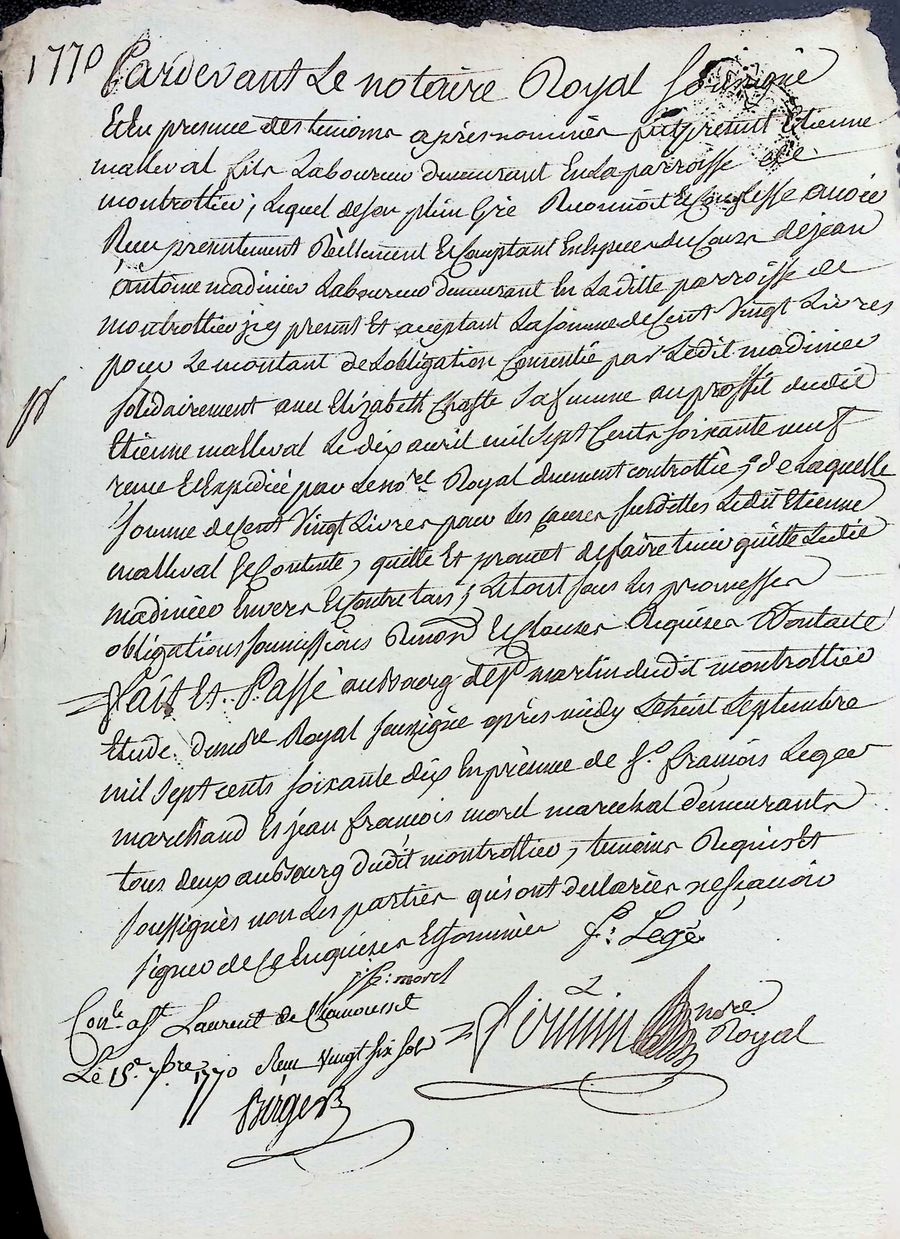 1770 Pardevant Le notaire Royal soussigné
Et En presence des temoins après nommés fut present Etienne
malleval fils Laboureur demeurant En La parroisse de
montrottier; Lequel de son plein Gré Reconnoit Et Confesse avoir
Reçu presentement Réellement Et Comptant En Especes du Cours de jean
antoine madinier Laboureur demeurant En La ditte parroisse de
montrottier icy present Et aceptant La somme de Cent Vingt Livres
pour Le montant de Lobligation Consentie par Ledit madinier
solidairement avec Elizabeth Chaste sa femme au proffit dudit
Etienne malleval Le dix avril mil sept Cents soixante neuf
receue Et Expediée par Le no.re Royal duement controllée, de Laquelle
somme de Cent Vingt Livres pour Les Causes susdittes Ledit Etienne
malleval se Contente, quitte Et promet de faire tenir quitte Ledit
madinier Envers Et Contre tous; Le tout sous Les promesses
obligations soumissions Renon.on Et Clauses Requises
fait Et Passé au Bourg de S.t martin dudit montrottier
Etude du no.re Royal soussigné après midy Le huit Septembre
mil sept cents soixante dix En presence de S.r François Leger
marchand Et jean françois morel marechal demeurants
tous deux au Bourg dudit montrottier, temoins Requis Et
soussignés non Les parties qui ont declarées ne sçavoir
signer de Ce Enquises Et Sommées f. Legé
j: f: morel
Con.le a S.t Laurent de Chamousset
Le 15.e 7bre 1770 Reçu Vingt six sols
notre Royal
Berger